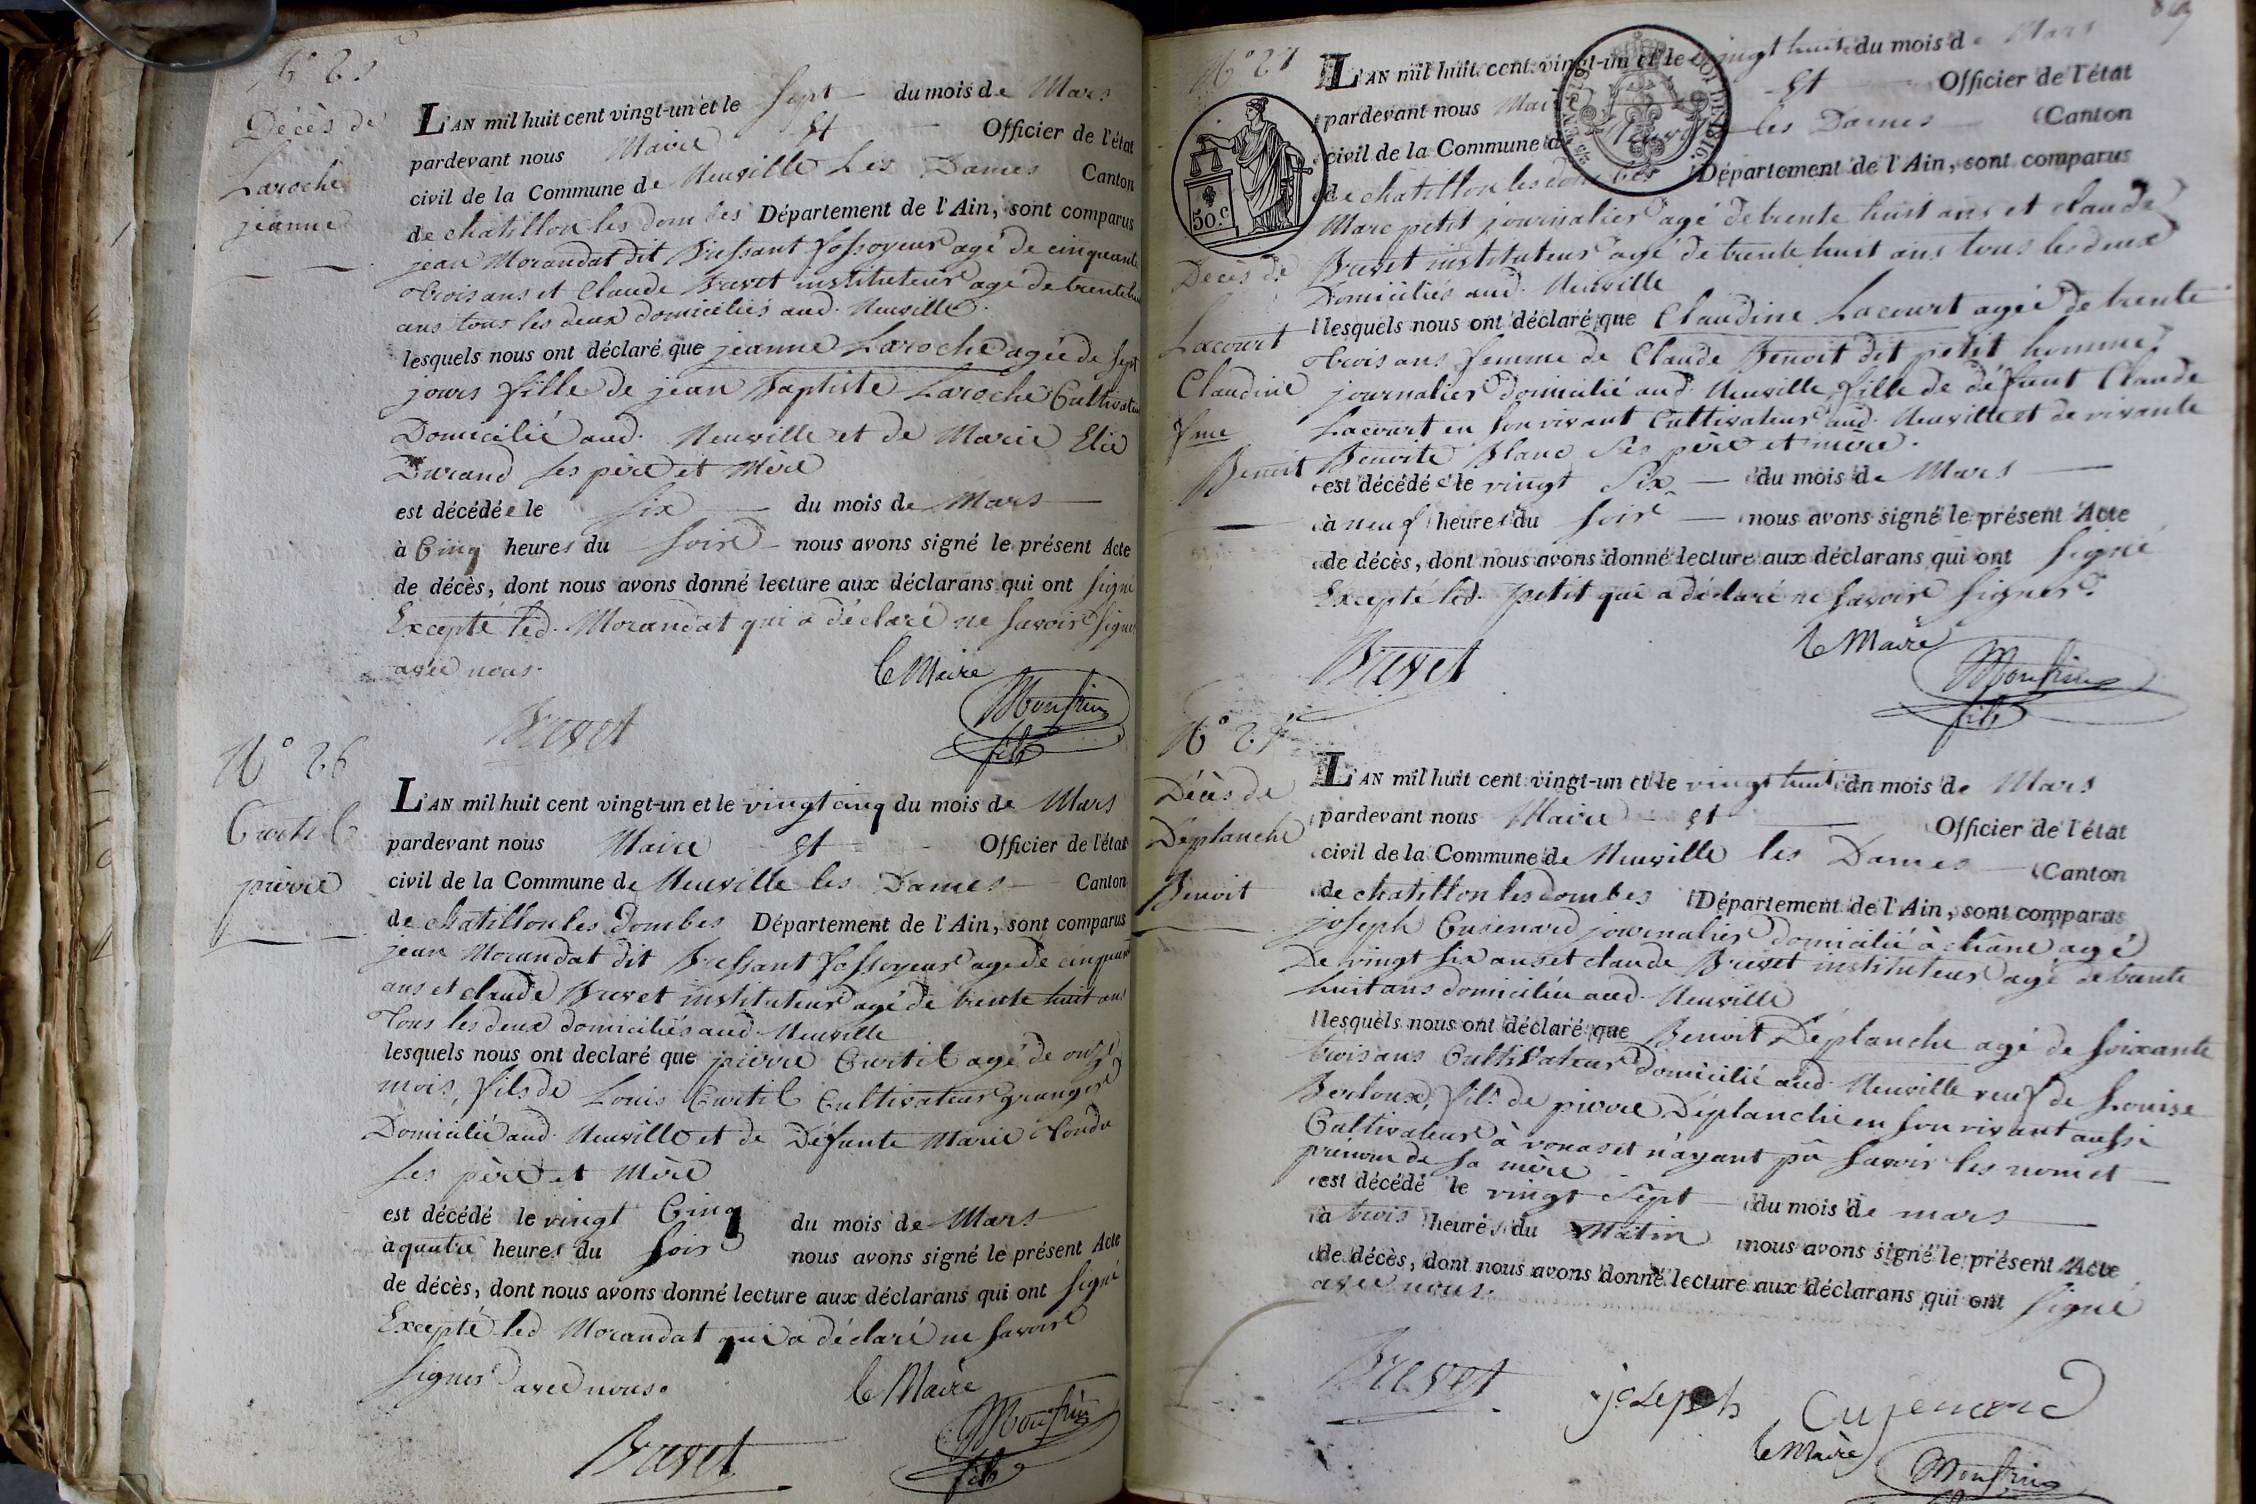 N° 25
Décès de
Laroche
jeanne
L'AN mil huit cent vingt-un et le Sept du mois de Mars
pardevant nous Maire Et Officier de l'état
civil de la Commune de Neuville Les Dames Canton
de chatillon les dombes Département de l'Ain, sont comparus
jean Morandat dit Bressant fossoyeur agé de cinquante
trois ans et Claude Brevet instituteur agé de trente
ans tous les deux domiciliés aud. Neuville
lesquels nous ont déclaré que jeanne Laroche agée de Sept
jours fille de jean Baptiste Laroche Cultivateur
Domicilié aud. Neuville et de Marie Elie
Durand Ses père et Mère
est décédée le Six du mois de Mars
à Cinq heures du Soir nous avons signé le présent Acte
de décès, dont nous avons donné lecture aux déclarans qui ont Signé
Excepté led. Morandat qui a déclaré ne Savoir Signer
avec nous.
le Maire
Brevet
Monfrin
fils
N° 26
Curtil
pierre
L'AN mil huit cent vingt-un et le vingt cinq du mois de Mars
pardevant nous Maire Et Officier de l'état
civil de la Commune de Neuville les Dames Canton
de chatillon les Dombes Département de l'Ain, sont comparus
jean Morandat dit Bressant fossoyeur agé de cinquante
ans et claude Brevet instituteur agé de trente huit ans
Tous les deux domiciliés aud. Neuville
lesquels nous ont declaré que pierre Curtil agé de onze
mois, fils de Louis Curtil Cultivateur granger
Domicilié aud. Neuville et de Défunte Marie
Ses père et Mère
est décédé le vingt Cinq du mois de Mars
à quatre heures du Soir nous avons signé le présent Acte
de décès, dont nous avons donné lecture aux déclarans qui ont Signé
Excepté led Morandat qui a déclaré ne Savoir
Signer avec nous.
le Maire
Brevet
Monfrin
fils
N° 27
50.c
Décès de
Lacourt
Claudine
fme
Benoit
L'AN mil huit cent vingt-un et le vingt huit du mois de Mars
pardevant nous Maire Et Officier de l'état
civil de la Commune de Neuville les Dames Canton
de chatillon les dombes Département de l'Ain, sont comparus
Marc petit journalier agé de trente huit ans et claude
Brevet instituteur agé de trente huit ans tous les deux
Domiciliés aud. Neuville
lesquels nous ont déclaré que Claudine Lacourt agée de trente
trois ans femme de Claude Benoit dit petit homme
journalier domicilié aud. Neuville, fille de défunt Claude
Lacourt en Son vivant Cultivateur aud. Neuville et de vivante
Benoite Blanc Ses père et mère.
est décédée le vingt Six du mois de Mars
à neuf heures du Soir nous avons signé le présent Acte
de décès, dont nous avons donné lecture aux déclarans qui ont Signé
Excepté led. petit qui a déclaré ne Savoir Signer.
le Maire
Brevet
Monfrin
fils
Décès de
Déplanche
Benoit
L'AN mil huit cent vingt-un et le vingt huit du mois de Mars
pardevant nous Maire Et Officier de l'état
civil de la Commune de Neuville les Dames Canton
de chatillon les dombes Département de l'Ain, sont comparus
joseph Cusenard journalier domicilié à chane, agé
De vingt Six ans et claude Brevet instituteur agé de trente
huit ans domicilié aud. Neuville
lesquels nous ont déclaré que Benoit Déplanche agé de Soixante
trois ans Cultivateur domicilié aud. Neuville veuf de Louise
Berloux, fils de pierre Déplanche en Son vivant aussi
Cultivateur à vonas et n'ayant pû Savoir les nom et
prénom de Sa mère
est décédé le vingt Sept du mois de mars
à trois heures du Matin nous avons signé le présent Acte
de décès, dont nous avons donné lecture aux déclarans qui ont Signé
avec nous.
Brevet
joseph
le Maire
Monfrin